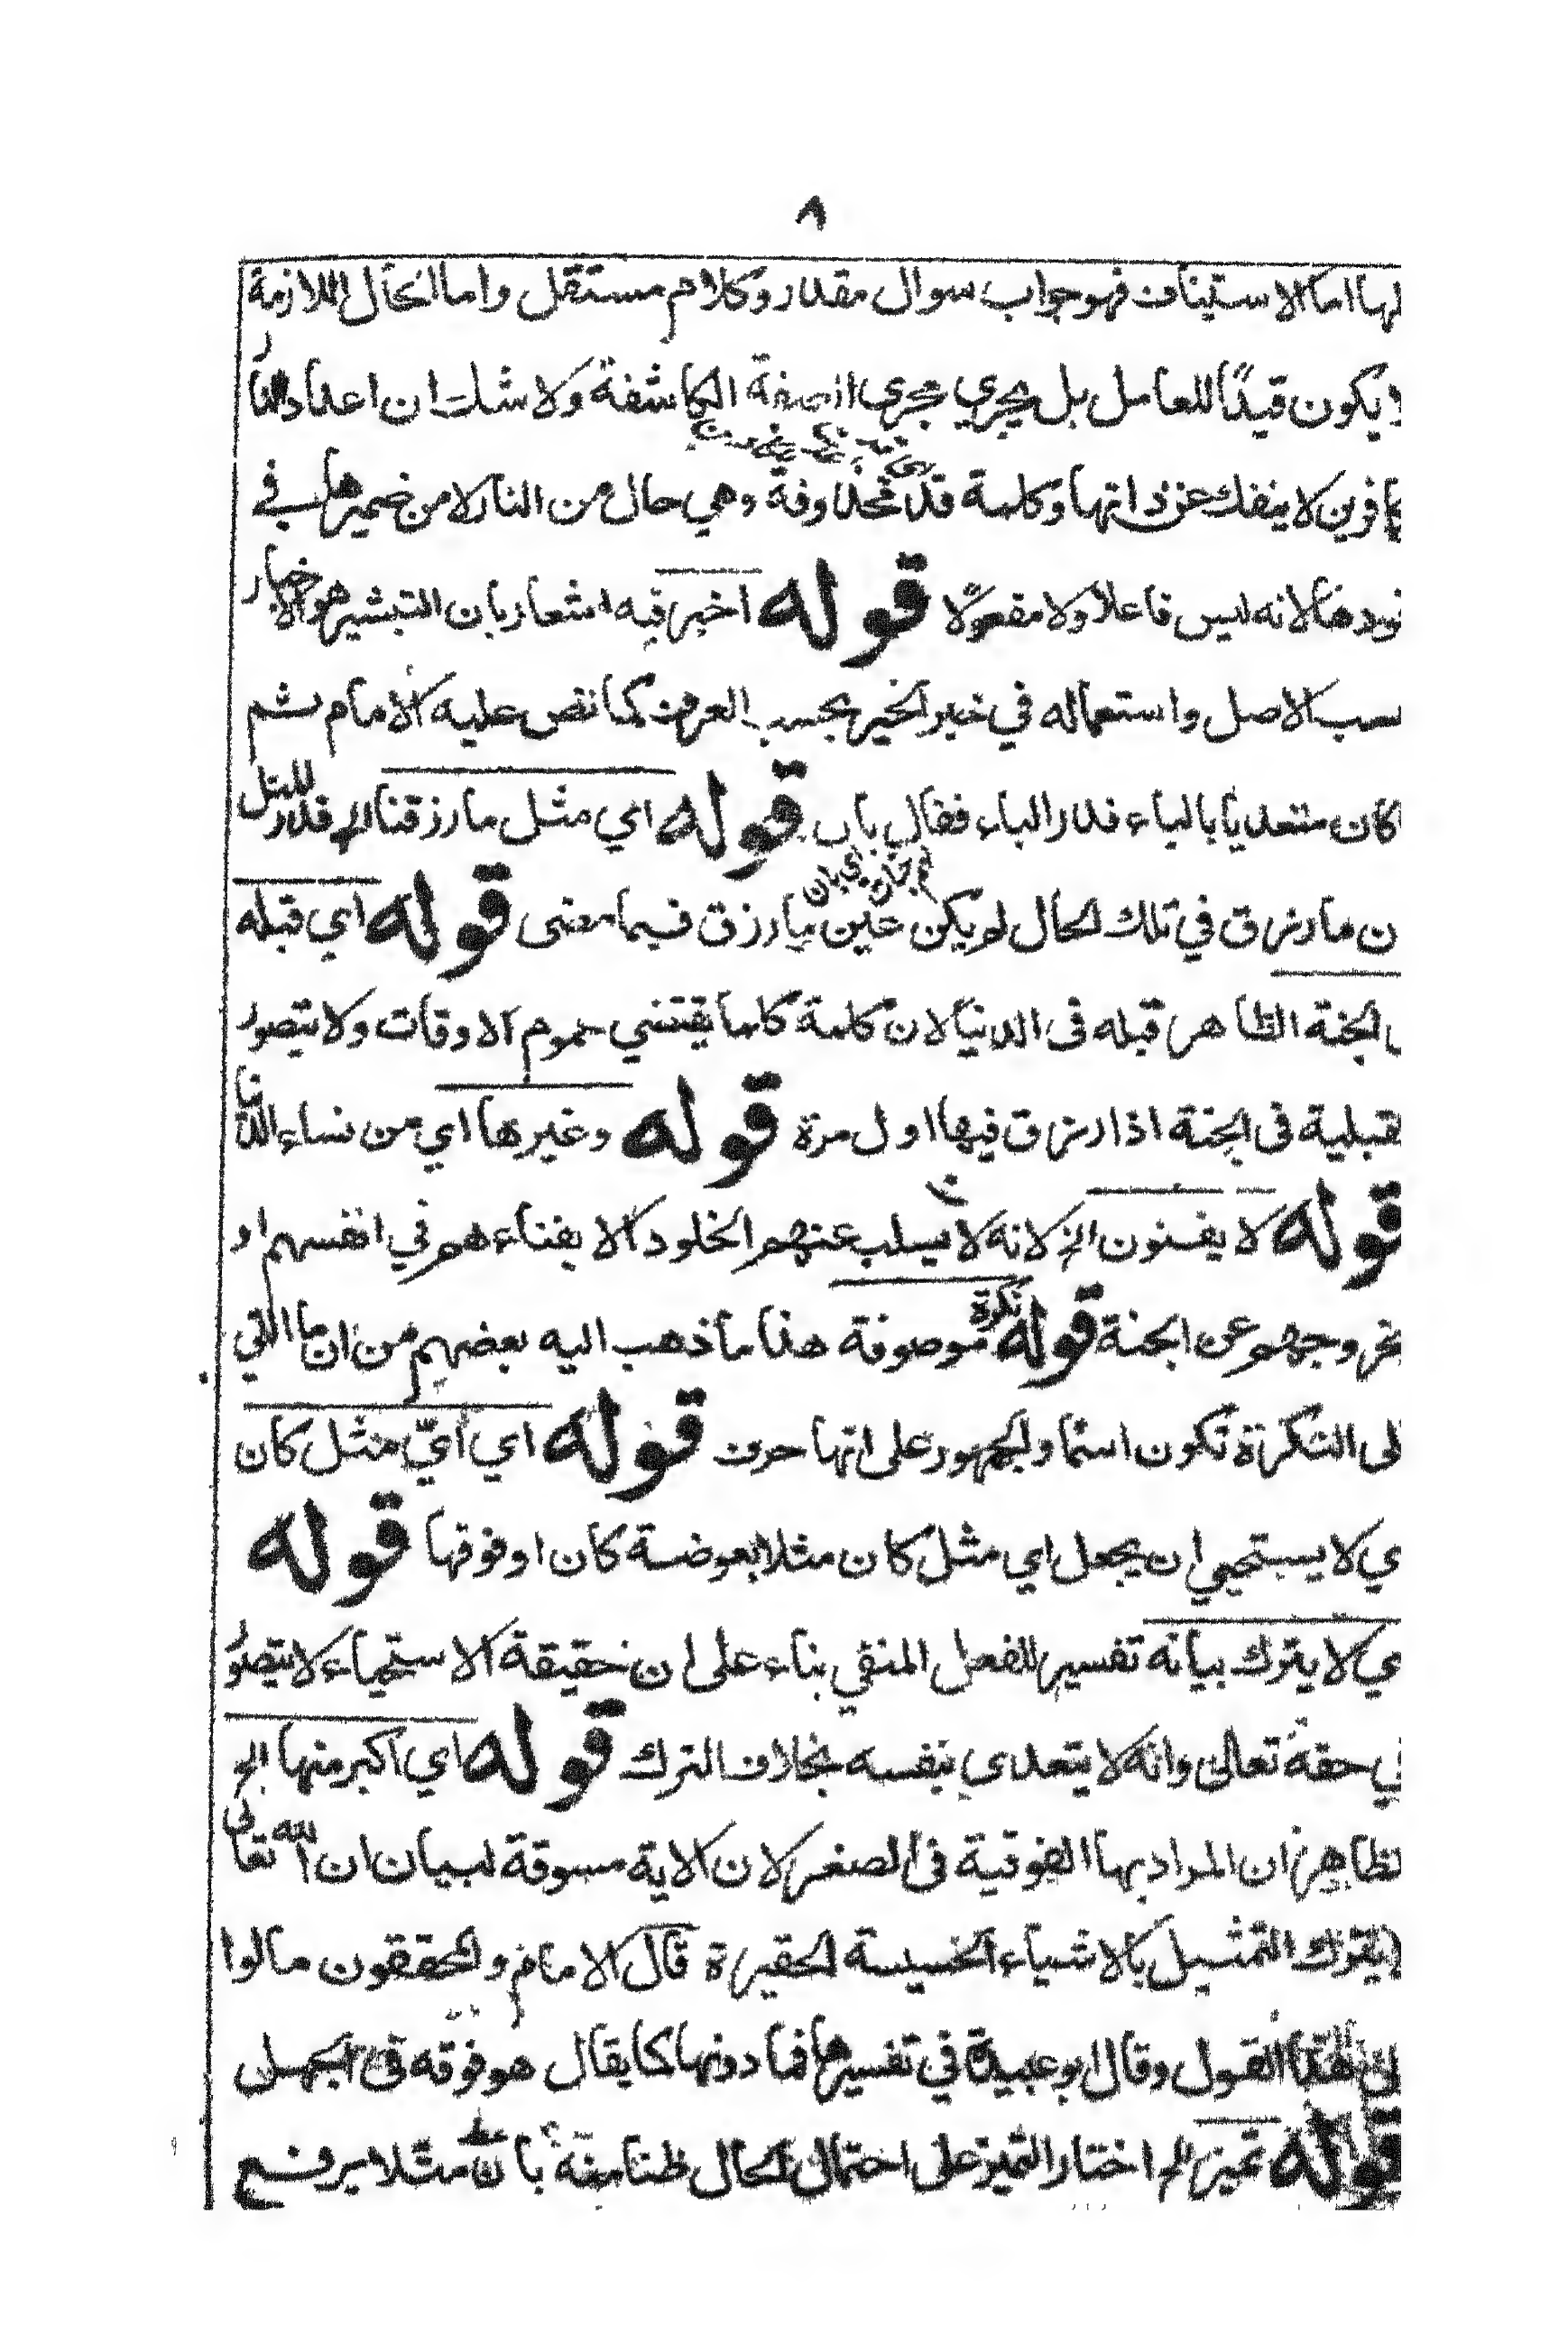 ٨
لها اما الاستيناف فهو جواب سوال مقدر وكلام مستقل واما الحال اللازمة
لا يكون قيدًا للعامل بل يجري مجرى الصفة الكاشفة ولا شك ان اعداد النار
لا ينفك عن ذاتها وكلمة قد محذوفة وهي حال من النار لا من ضميرها في
وقودها لانه ليس فاعلا ولا مفعولا قوله اخبر فيه اشعار بان التبشير هو الاخبار
بحسب الاصل واستعماله في خبر الخير بحسب العرف كما نص عليه الامام ثم
كان متعديا بالباء قدر الباء فقال بان قوله اي مثل ما رزقنا الخ قدر للمثل
ن ما رزق في تلك الحال لم يكن عين ما رزق فيما مضى قوله اي قبله
الجنة الظاهر قبله في الدنيا لان كلمة كلما يقتضي عموم الاوقات ولا يتصور
لقبلية في الجنة اذا رزق فيها اول مرة قوله وغيرها اي من نساء الدنيا
قوله لا يفنون الخ لانه لا يسلب عنهم الخلود الا بفناء هم في انفسهم او
بخروجهم عن الجنة قوله نكرة موصوفة هذا ما ذهب اليه بعضهم من ان ما التي
تلى النكرة تكون اسما والجمهور على انها حرف قوله اي ايّ مثل كان
ي لا يستحيي ان يجعل اي مثل كان مثلا بعوضة كان او فوقها قوله
ي لا يترك بيانه تفسير للفعل المنفي بناء على ان حقيقة الاستحياء لا يتصور
في حقه تعالى وانه لا يتعدي بنفسه بخلاف الترك قوله اي اكبر منها الخ
لظاهر ان المراد بها الفوقية في الصغر لان الاية مسوقة لبيان ان الله تعالى
لا يترك التمثيل بالاشياء الخسيسة الحقيرة قال الامام والمحققون مالوا
الى هذا القول وقال ابو عبيدة في تفسيرها فما دونها كما يقال هو فوقه في الجهل
قوله تميز الخ اختار التميز على احتمال الحال ظنا منه بان مثلا يرفع